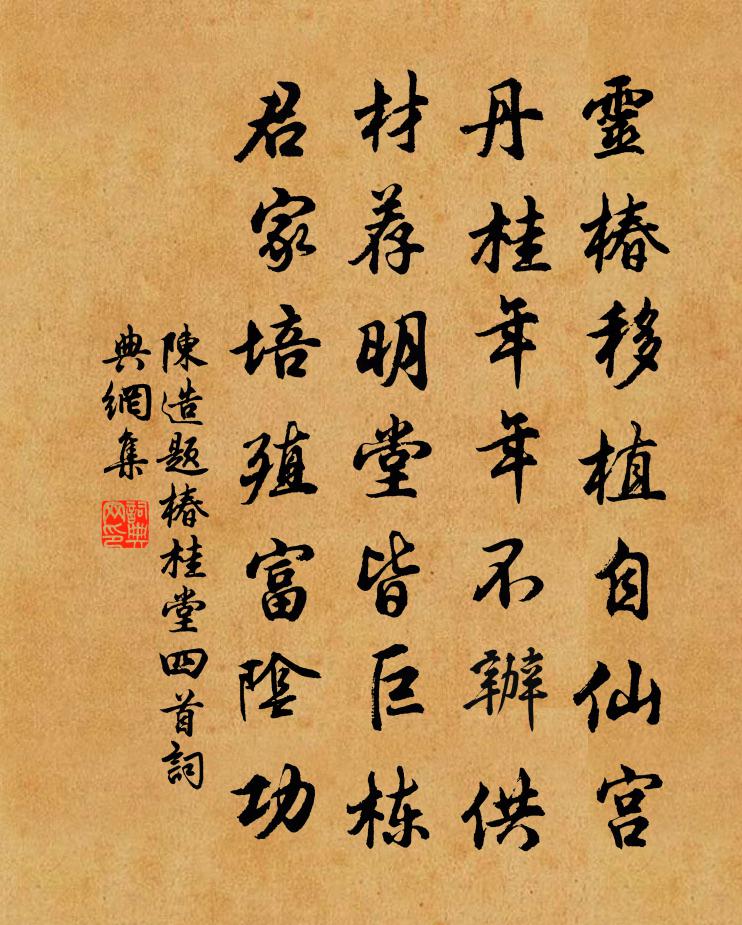 靈椿移植自仙宫
丹桂年年不辦供
材荐明堂皆巨栋
君家培殖富陰功
陳造題椿桂堂四首詞
典網集
詞典
网印